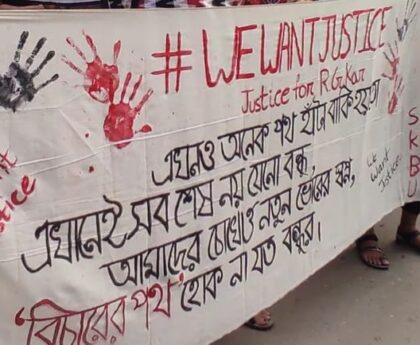 # WE WANT JUSTICE
Justice for R G Kar
এখনও অনেক পথ হাঁটা বাকি হয়তো
এখানেই সব শেষ নয় যেনো বন্ধু,
আমাদের চোখেও নতুন ভোরের স্বপ্ন,
'বিচারের পথ' হোক না যত বন্ধুর।
We
Want
Justice